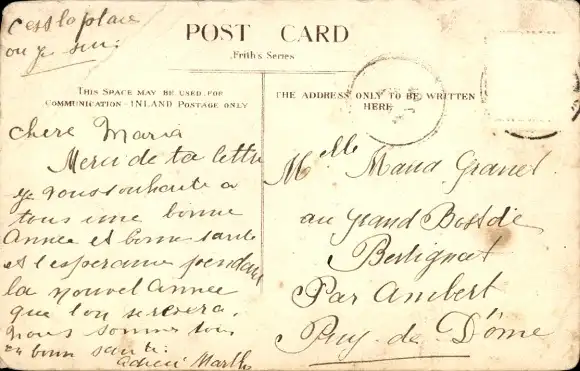 C'est la place
ou je suis
POST CARD
Frith's Series
THIS SPACE MAY BE USED FOR
COMMUNICATION - INLAND POSTAGE ONLY
THE ADDRESS ONLY TO BE WRITTEN
HERE
chere Maria
Merci de ta lettre
je vous souhaite a
tous une bonne
Année et bonne santé
et l'esperance pendant
la nouvel Année
que l'on se revera.
nous sommes tous
en bonn santé.
adieu Marthe
Melle Maria Granet
au grand Bost de
Bertignat
Par Ambert
Puy-de-Dôme